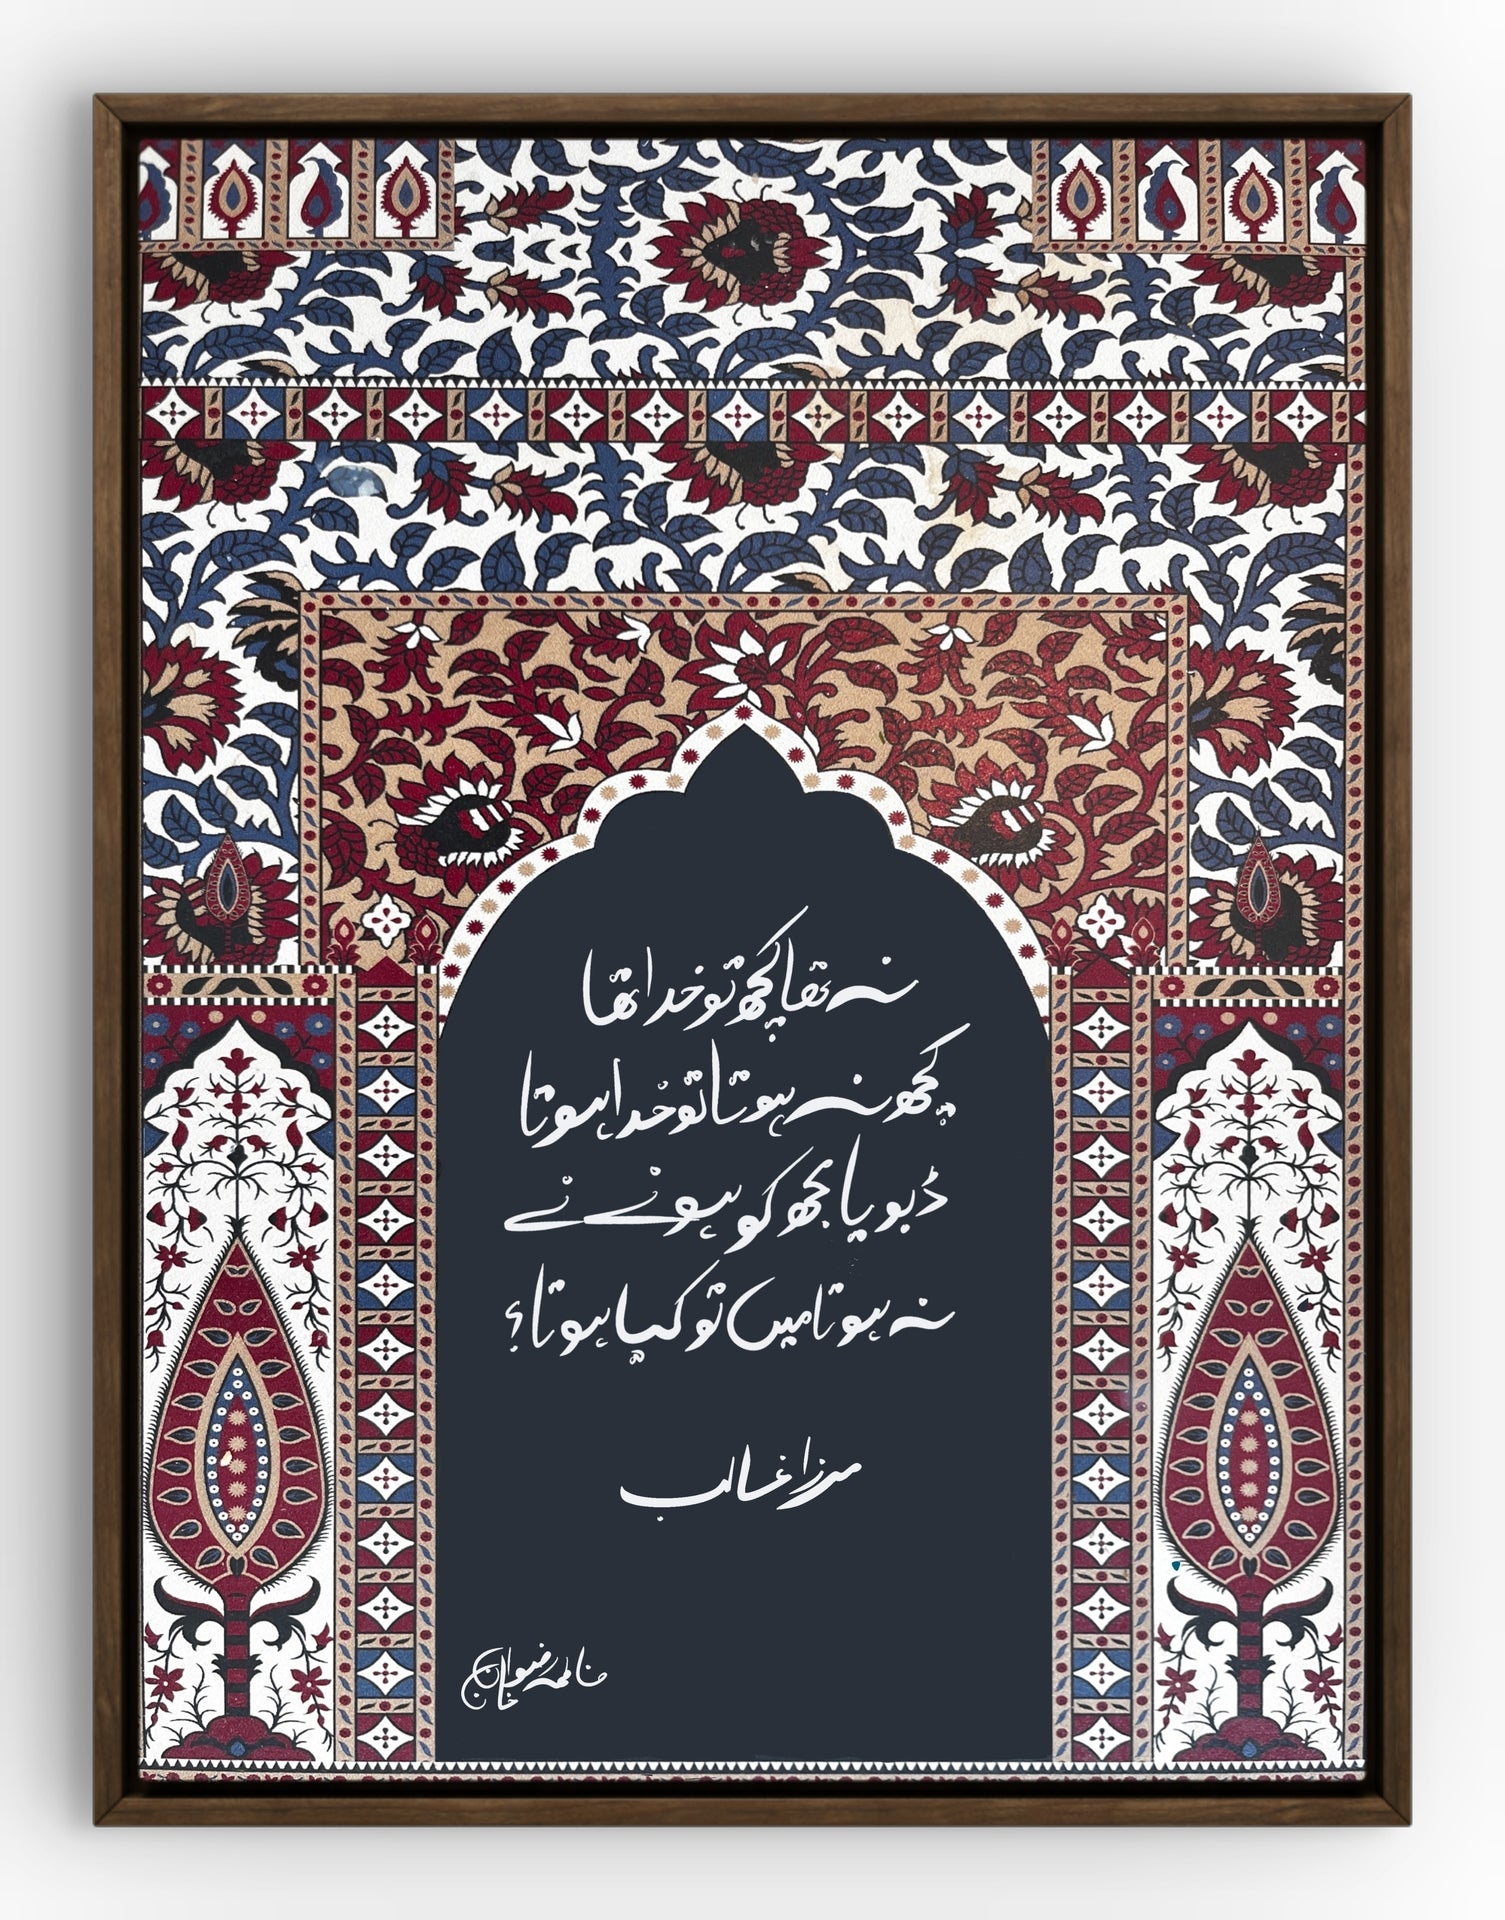 نہ تھا کچھ تو خدا تھا
کچھ نہ ہوتا تو خُدا ہوتا
ڈبویا مجھ کو ہونے نے
نہ ہوتا میں تو کیا ہوتا؟
مرزا غالب
رضوان خان